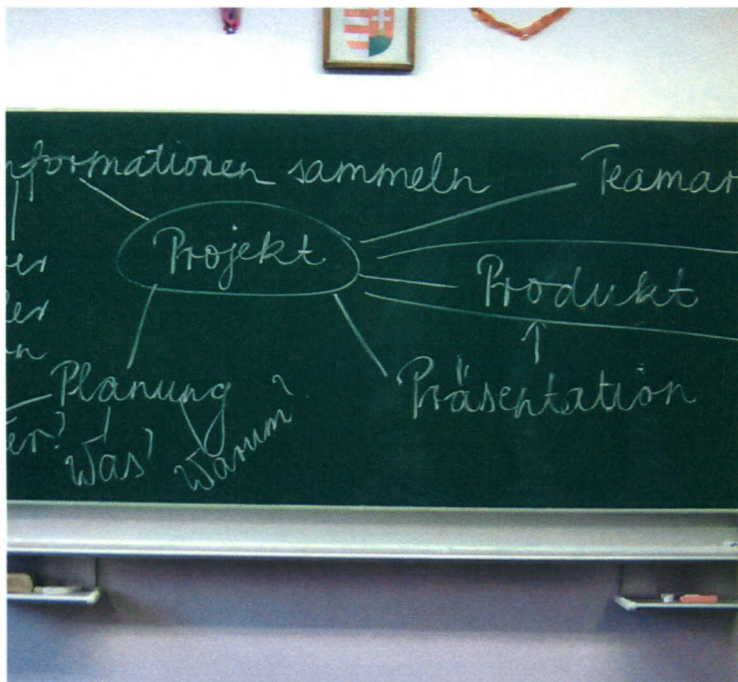 nformationen sammeln
Teamar
Projekt
Produkt
Planung
Präsentation
Was?
Warum?